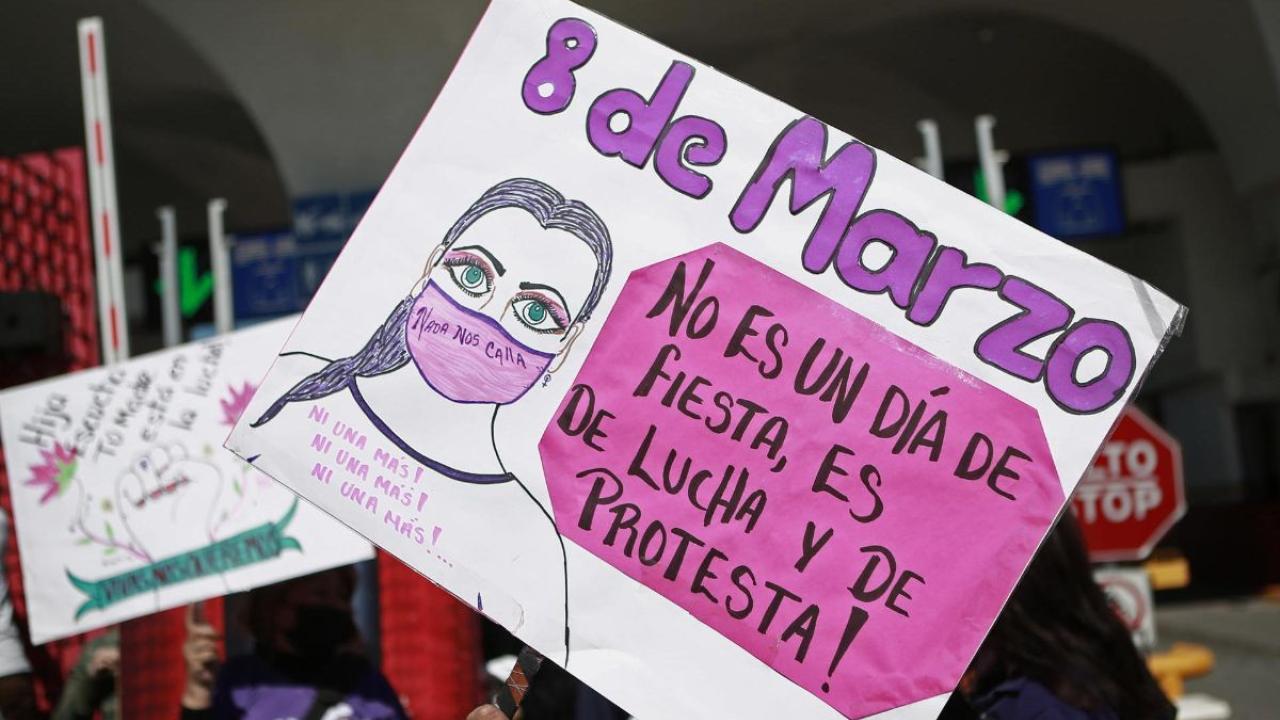 8 de Marzo
NO ES UN DÍA DE
FIESTA, ES
DE LUCHA Y DE
PROTESTA!
NADA NOS CALLA
NI UNA MÁS!
NI UNA MÁS!
NI UNA MÁS!...
Hija
Escucha
TÚ Madre
está en
la lucha
VIVAS NOS QUEREMOS
ALTO
STOP